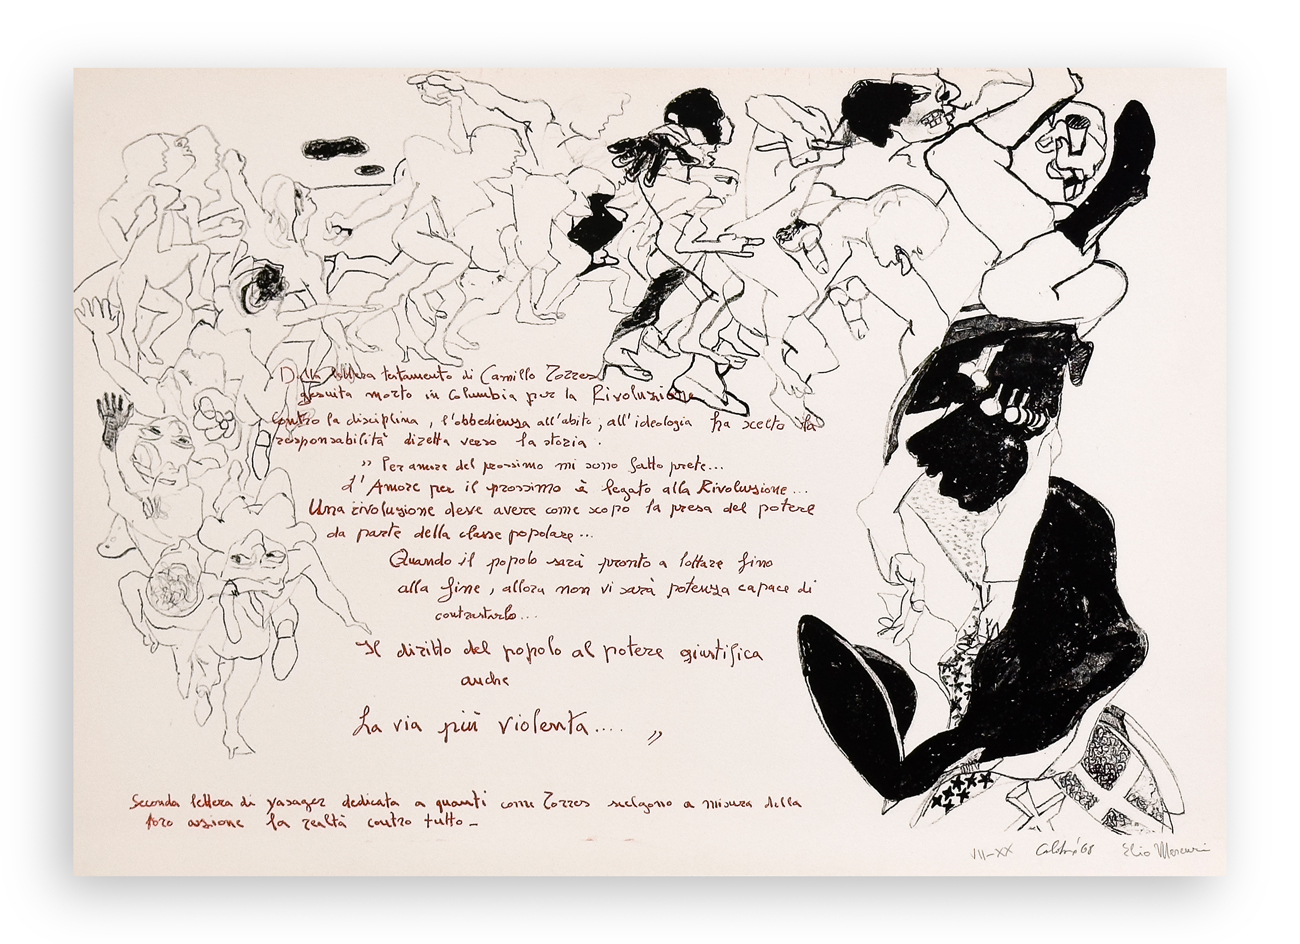 Dalla lettera testamento di Camillo Torres
gesuita morto in Columbia per la Rivoluzione
contro la disciplina, l'obbedienza all'abito, all'ideologia ha scelto la
responsabilità diretta verso la storia.
" Per amore del prossimo mi sono fatto prete...
d'Amore per il prossimo è legato alla Rivoluzione...
Una rivoluzione deve avere come scopo la presa del potere
da parte della classe popolare...
Quando il popolo sarà pronto a lottare fino
alla fine, allora non vi sarà potenza capace di
contrastarlo...
Il diritto del popolo al potere giustifica
anche
La via più violenta.... "
Seconda lettera di dedicata a quanti come Torres scelgono a misura della
loro azione la realtà contro tutto_
VII-XX '68 Elio Mercuri